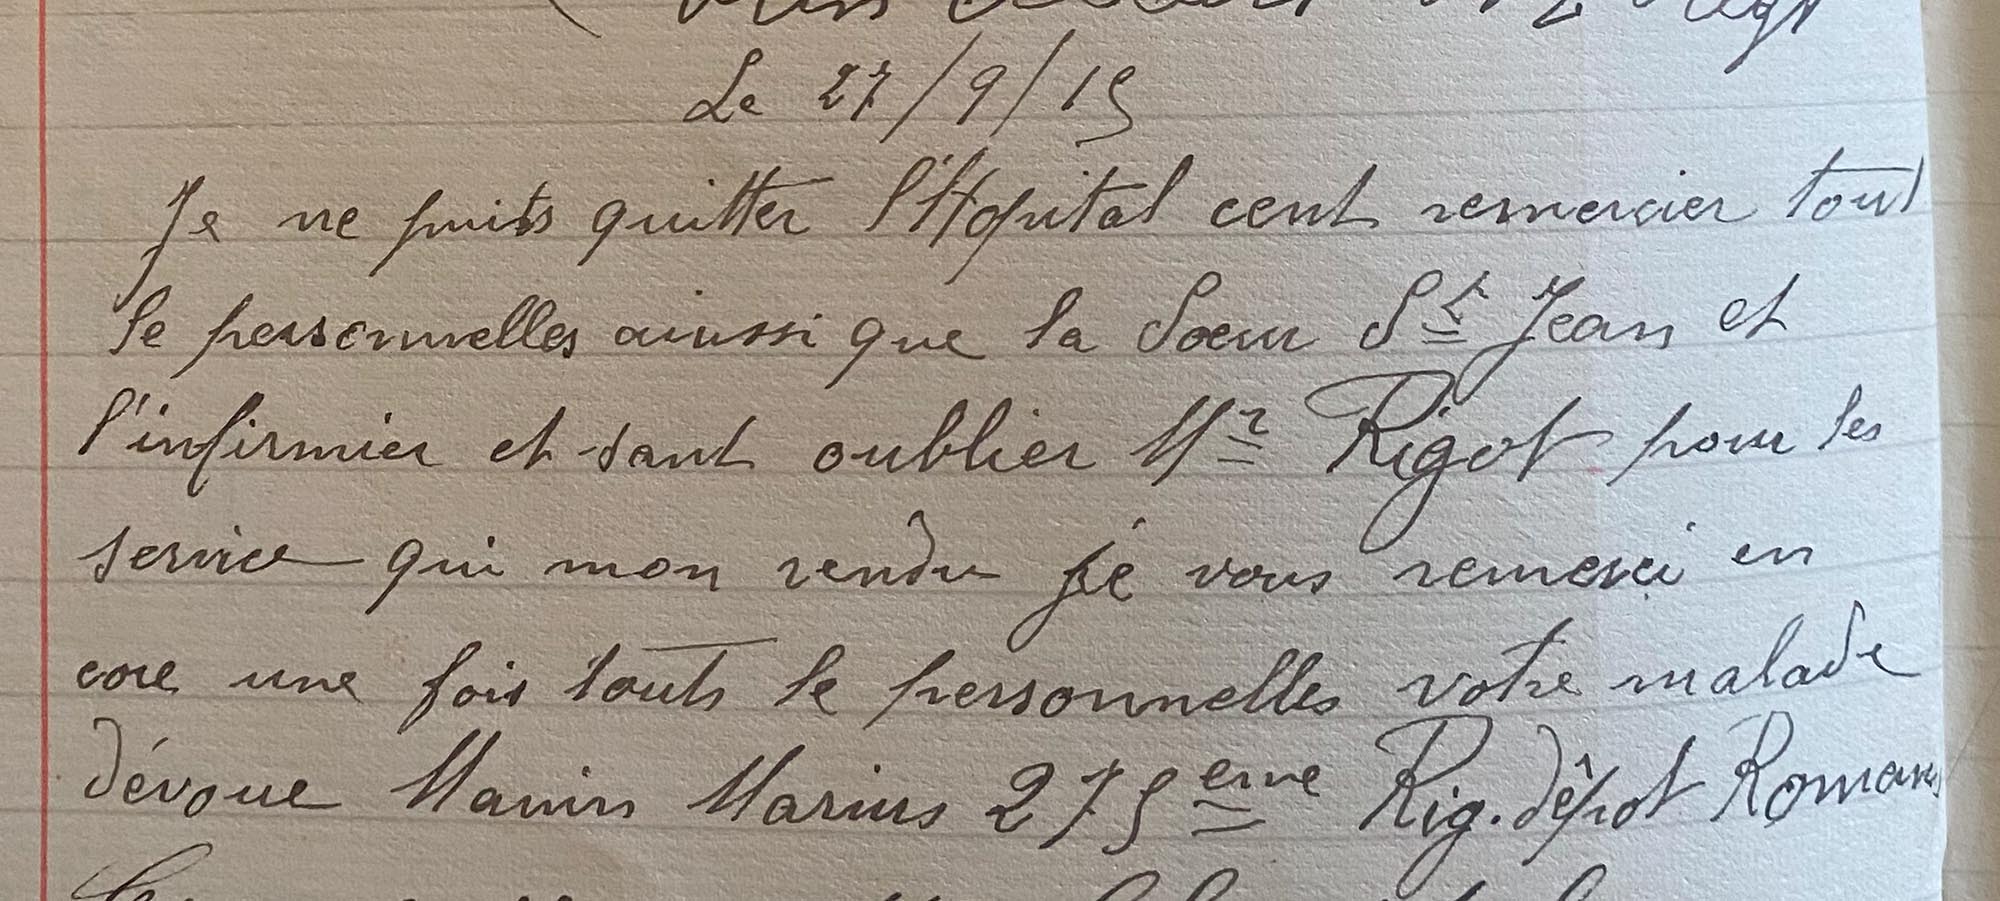 Le 27/9/15
Je ne puits quitter l'Hopital cent remercier tout
le personnelles ainssi que la Sœur St Jean et
l'infirmier et sant oublier Mr Rigot pour les
service qui mon rendu je vous remerci en
core une fois touts le personnelles votre malade
dévoue Manin Marius 275eme Rig. dêpot Romans